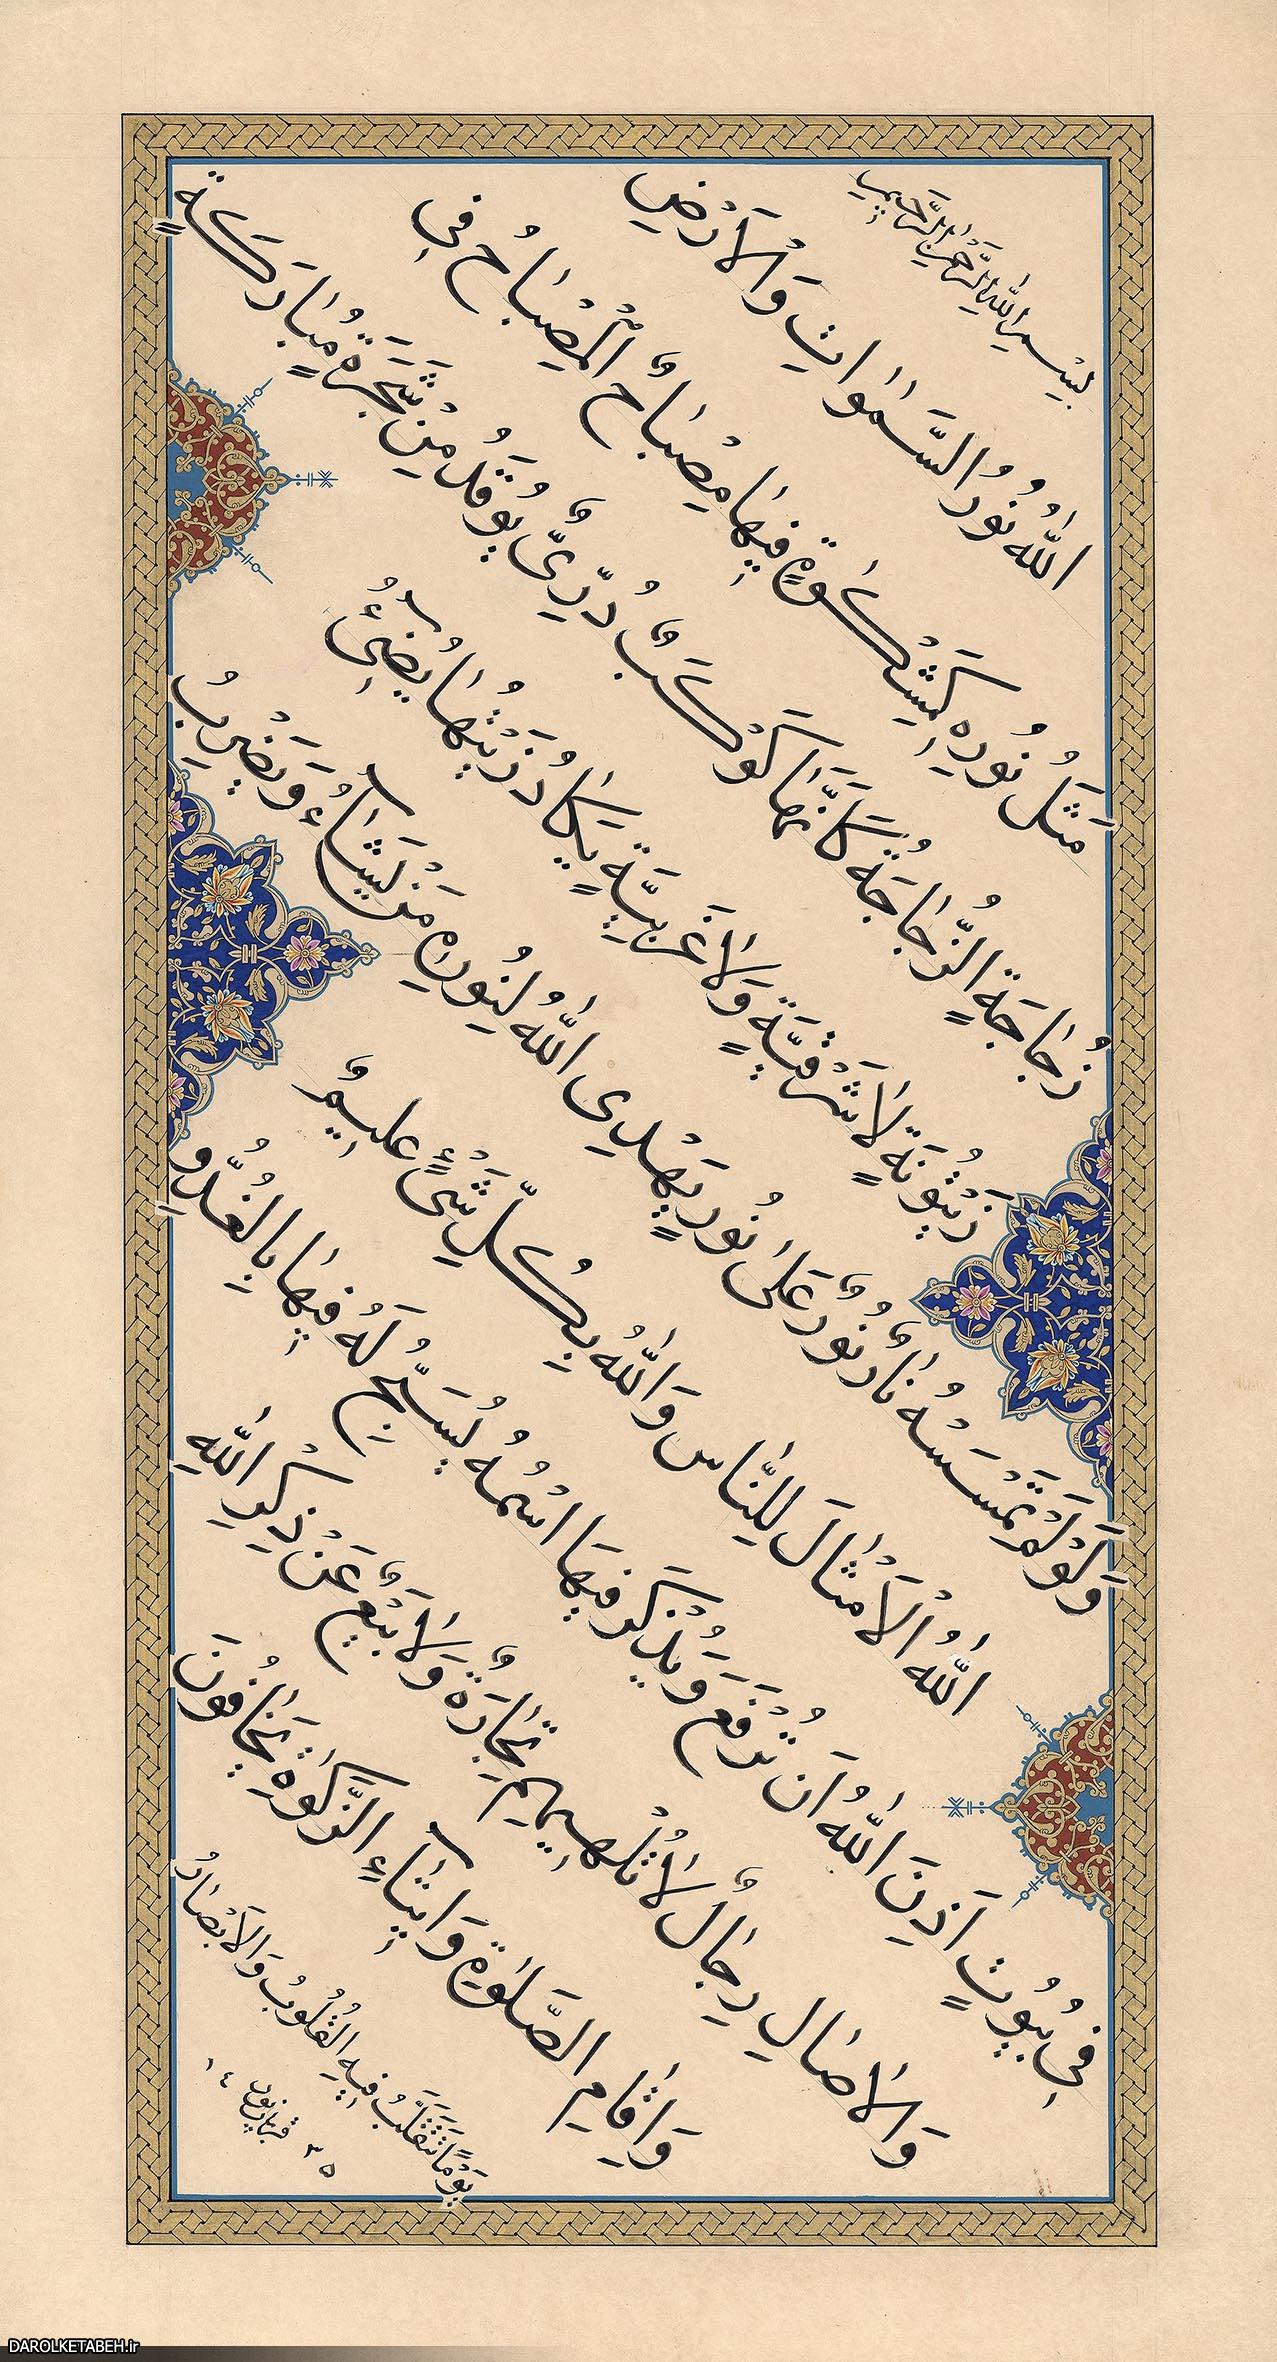 بِسْمِ اللهِ الرَّحْمٰنِ الرَّحِيمِ
اَللهُ نُورُ السَّمٰوَاتِ وَالْاَرْضِ
مَثَلُ نُورِهِ كَمِشْكٰوةٍ فِيهَا مِصْبَاحٌ اَلْمِصْبَاحُ فِي
زُجَاجَةٍ الزُّجَاجَةُ كَاَنَّهَا كَوْكَبٌ دُرِّيٌّ يُوقَدُ مِنْ شَجَرَةٍ مُبَارَكَةٍ
زَيْتُونَةٍ لَا شَرْقِيَّةٍ وَلَا غَرْبِيَّةٍ يَكَادُ زَيْتُهَا يُضِيءُ
وَلَوْ لَمْ تَمْسَسْهُ نَارٌ نُورٌ عَلَى نُورٍ يَهْدِى اللهُ لِنُورِهِ مَنْ يَشَاءُ وَيَضْرِبُ
اللهُ الْاَمْثَالَ لِلنَّاسِ وَاللهُ بِكُلِّ شَىْءٍ عَلِيمٌ
فِى بُيُوتٍ اَذِنَ اللهُ اَنْ تُرْفَعَ وَيُذْكَرَ فِيهَا اسْمُهُ يُسَبِّحُ لَهُ فِيهَا بِالْغُدُوِّ
وَالْاٰصَالِ رِجَالٌ لَا تُلْهِيهِمْ تِجَارَةٌ وَلَا بَيْعٌ عَنْ ذِكْرِ اللهِ
وَاِقَامِ الصَّلٰوةِ وَاِيتَاءِ الزَّكٰوةِ يَخَافُونَ
يَوْمًا تَتَقَلَّبُ فِيهِ الْقُلُوبُ وَالْاَبْصَارُ
DAROLKETABEH.ir